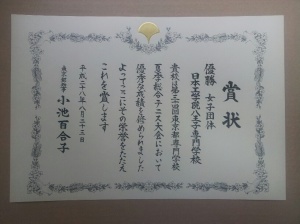 賞状
優勝 女子団体
日本工学院八王子専門学校
貴校は第三十回東京都専門学校
夏季総合テニス大会において
優秀な成績を修められました
よってここにその栄誉をたたえ
これを賞します
平成二十八年八月二十三日
東京都知事 小池百合子